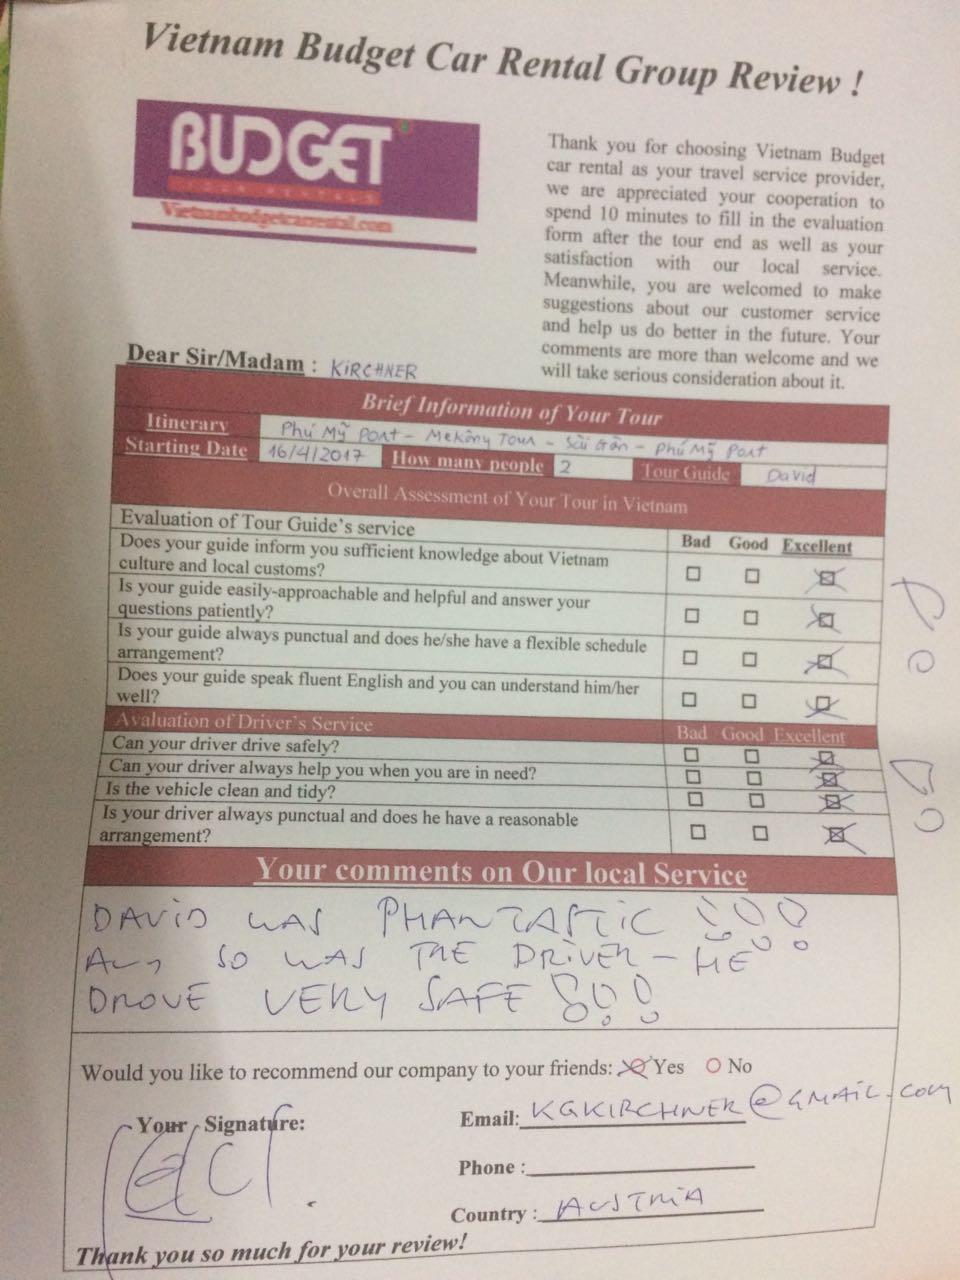 Vietnam Budget Car Rental Group Review !
BUDGET
Vietnambudgetcarrental.com
Thank you for choosing Vietnam Budget
car rental as your travel service provider,
we are appreciated your cooperation to
spend 10 minutes to fill in the evaluation
form after the tour end as well as your
satisfaction with our local service.
Meanwhile, you are welcomed to make
suggestions about our customer service
and help us do better in the future. Your
comments are more than welcome and we
will take serious consideration about it.
Dear Sir/Madam : KIRCHNER
Brief Information of Your Tour
Itinerary Phú Mỹ Port - Mekong Tour - Sài Gòn - Phú Mỹ Port
Starting Date 16/4/2017 How many people 2 Tour Guide David
Overall Assessment of Your Tour in Vietnam
Evaluation of Tour Guide's service Bad Good Excellent
Does your guide inform you sufficient knowledge about Vietnam
culture and local customs?
Is your guide easily-approachable and helpful and answer your
questions patiently?
Is your guide always punctual and does he/she have a flexible schedule
arrangement?
Does your guide speak fluent English and you can understand him/her
well?
Avaluation of Driver's Service Bad Good Excellent
Can your driver drive safely?
Can your driver always help you when you are in need?
Is the vehicle clean and tidy?
Is your driver always punctual and does he have a reasonable
arrangement?
Your comments on Our local Service
DAVID WAS PHANTASTIC !!!
AND SO WAS THE DRIVER - HE
DROVE VERY SAFE !!!
Would you like to recommend our company to your friends: Yes No
Your Signature:
Email: KGKIRCHNER@GMAIL.COM
Phone :
Country : AUSTRIA
Thank you so much for your review!